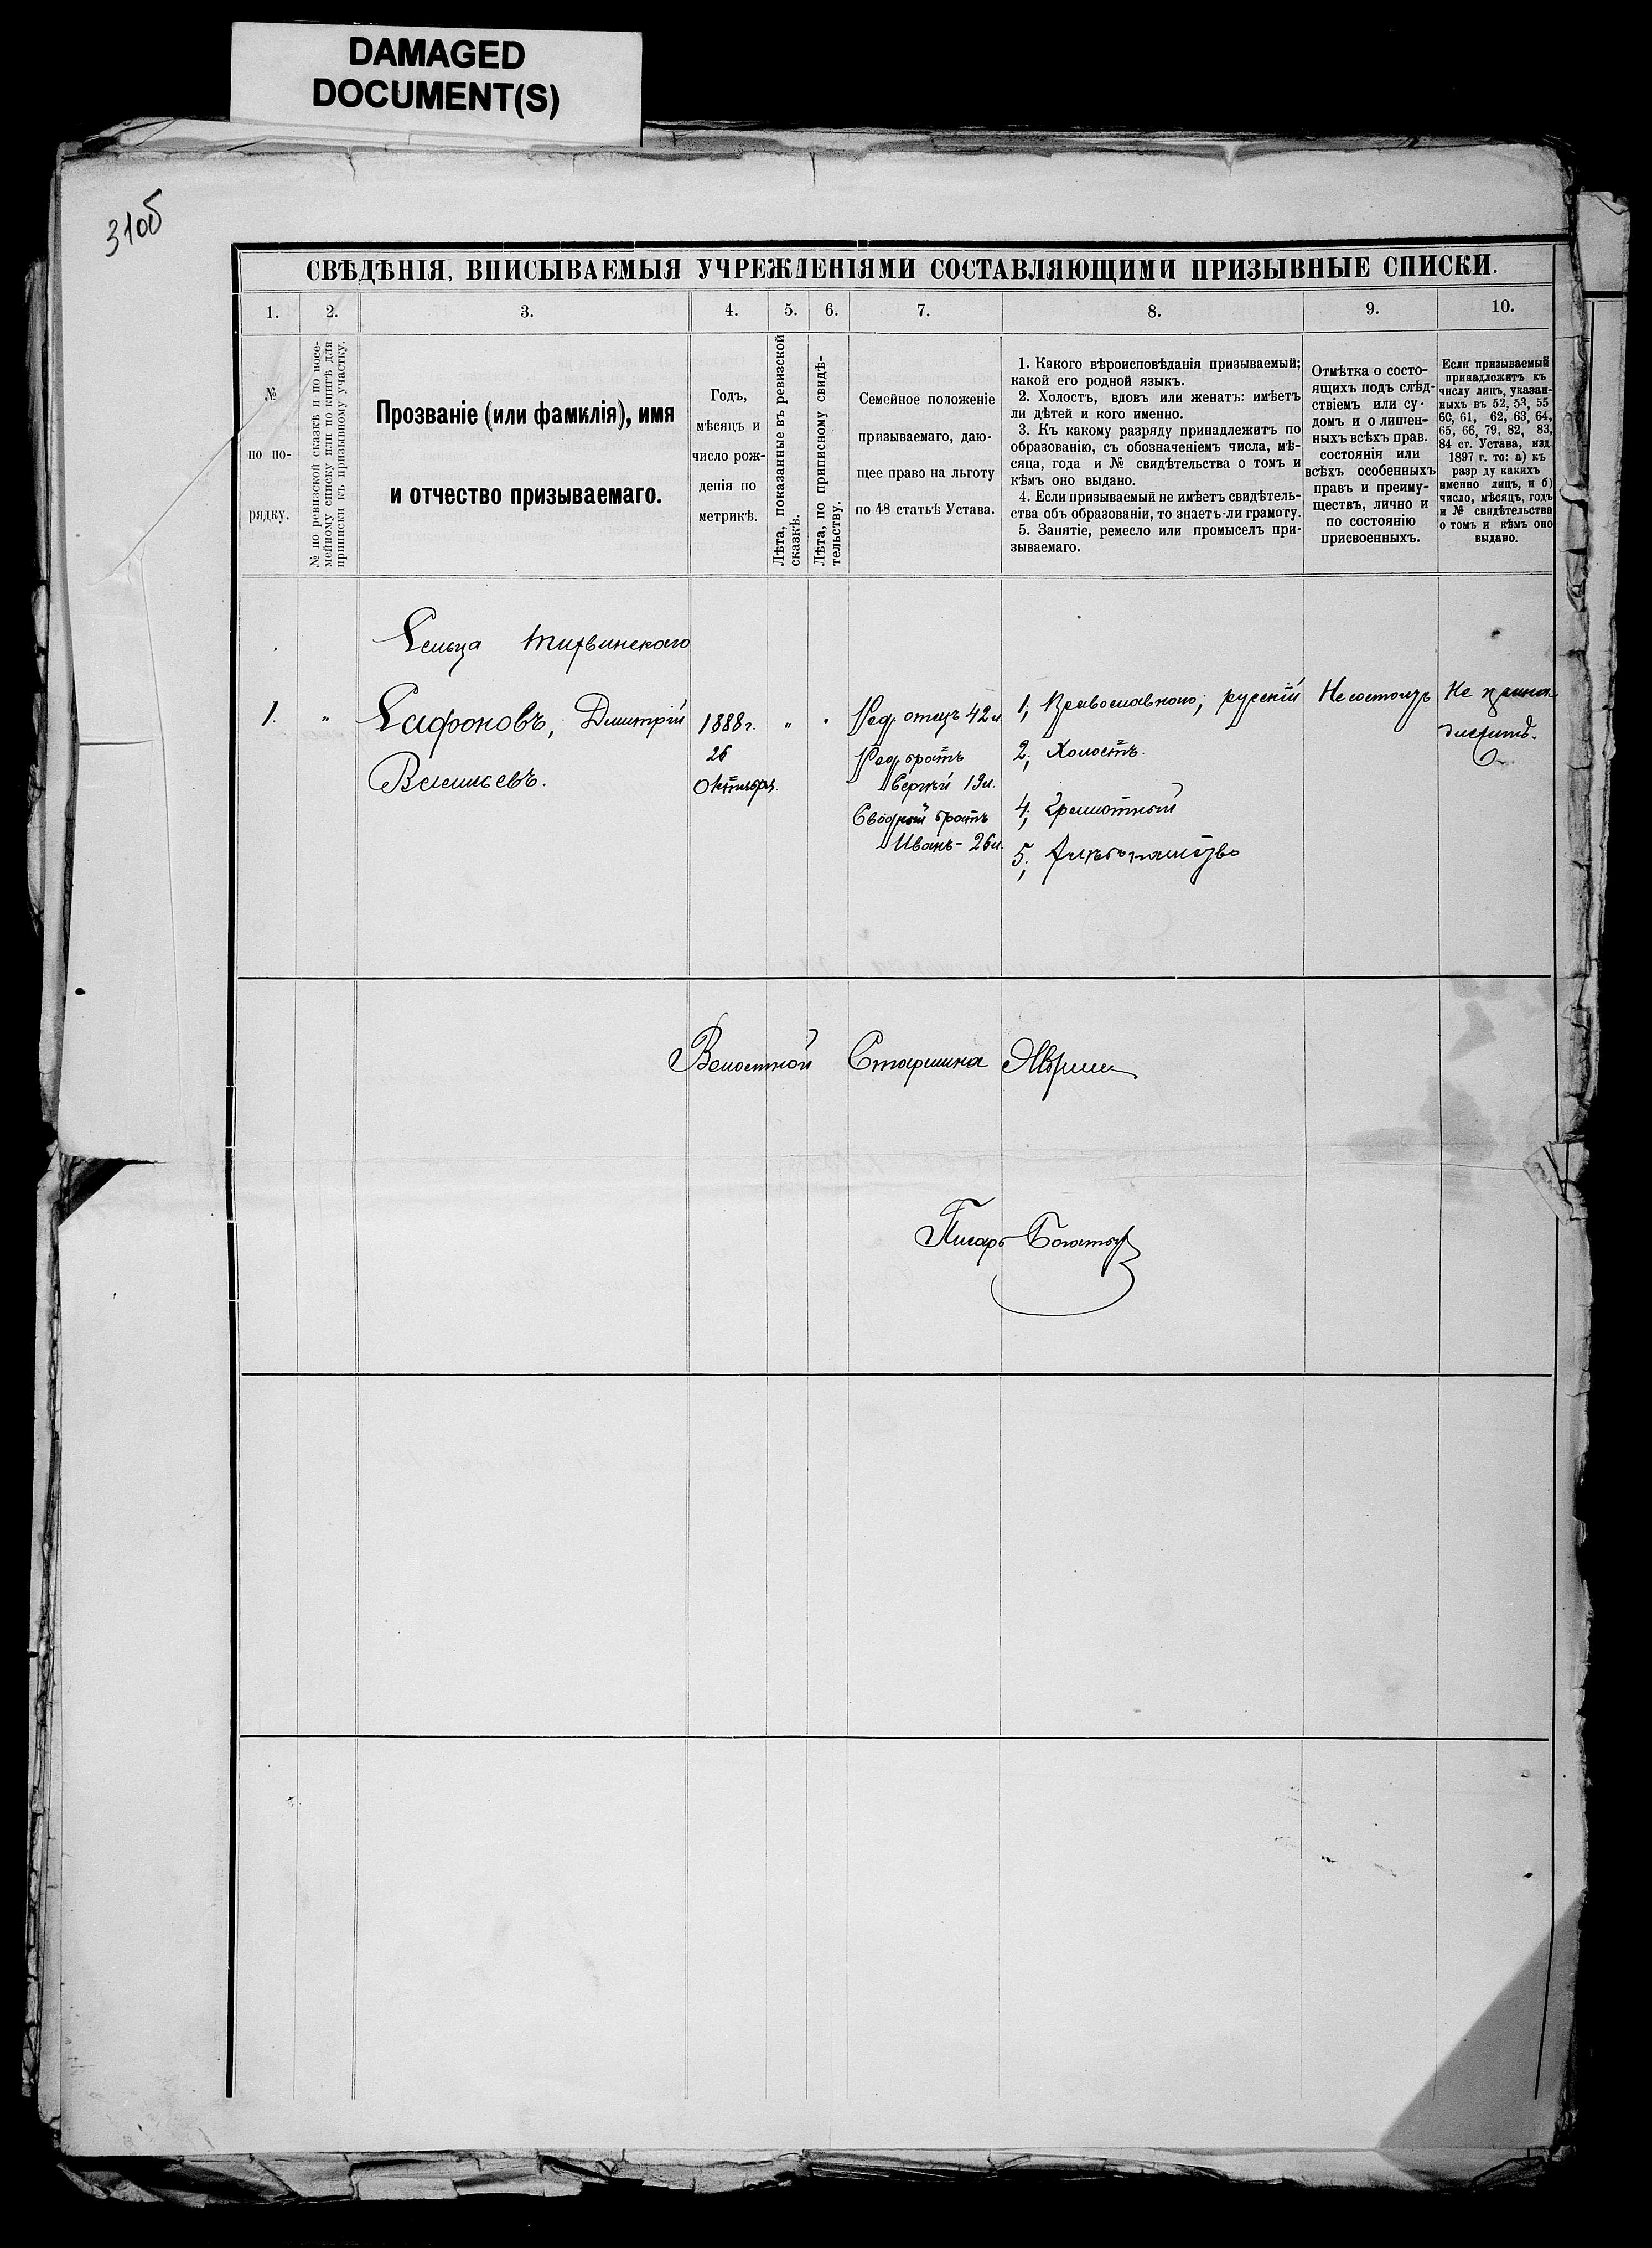 DAMAGED
DOCUMENT(S)
310б
СВѢДѢНІЯ, ВПИСЫВАЕМЫЯ УЧРЕЖДЕНІЯМИ СОСТАВЛЯЮЩИМИ ПРИЗЫВНЫЕ СПИСКИ.
1. 2. 3. 4. 5. 6. 7. 8. 9. 10.
№
по по-
рядку.
№ по ревизской сказкѣ и по посе-
мейному списку или по книгѣ для
приписки къ призывному участку.
Прозваніе (или фамилія), имя
и отчество призываемаго.
Годъ,
мѣсяцъ и
число рож-
денія по
метрикѣ.
Лѣта, показанные въ ревизской
сказкѣ.
Лѣта, по приписному свидѣ-
тельству.
Семейное положеніе
призываемаго, даю-
щее право на льготу
по 48 статьѣ Устава.
1. Какого вѣроисповѣданія призываемый;
какой его родной языкъ.
2. Холостъ, вдовъ или женатъ: имѣетъ
ли дѣтей и кого именно.
3. Къ какому разряду принадлежитъ по
образованію, съ обозначеніемъ числа, мѣ-
сяца, года и № свидѣтельства о томъ и
кѣмъ оно выдано.
4. Если призываемый не имѣетъ свидѣтель-
ства объ образованіи, то знаетъ-ли грамоту.
5. Занятіе, ремесло или промыселъ при-
зываемаго.
Отмѣтка о состо-
ящихъ подъ слѣд-
ствіемъ или су-
домъ и о лишен-
ныхъ всѣхъ прав.
состоянія или
всѣхъ особенныхъ
правъ и преиму-
ществъ, лично и
по состоянію
присвоенныхъ.
Если призываемый
принадлежитъ къ
числу лицъ, указан-
ныхъ въ 52, 53, 55
60, 61, 62, 63, 64,
65, 66, 79, 82, 83,
84 ст. Устава, изд.
1897 г. то: а) къ
разр ду какихъ
именно лицъ, и б)
число, мѣсяцъ, годъ
и № свидѣтельства
о томъ и кѣмъ оно
выдано.
Сельца
1. " Сафоновъ, Дмитрій
Васильевъ.
1888 г.
26
Октября.
" "
Род. отецъ 42 л.
Род. братъ
Сергѣй 19 л.
Сводный братъ
Иванъ - 26 л.
1; Православного; русскій
2; Холостъ.
4; Грамотный
5; Хлѣбопашество
Не состоитъ
Не принад-
длежитъ.
Волостной Старшина
Писарь